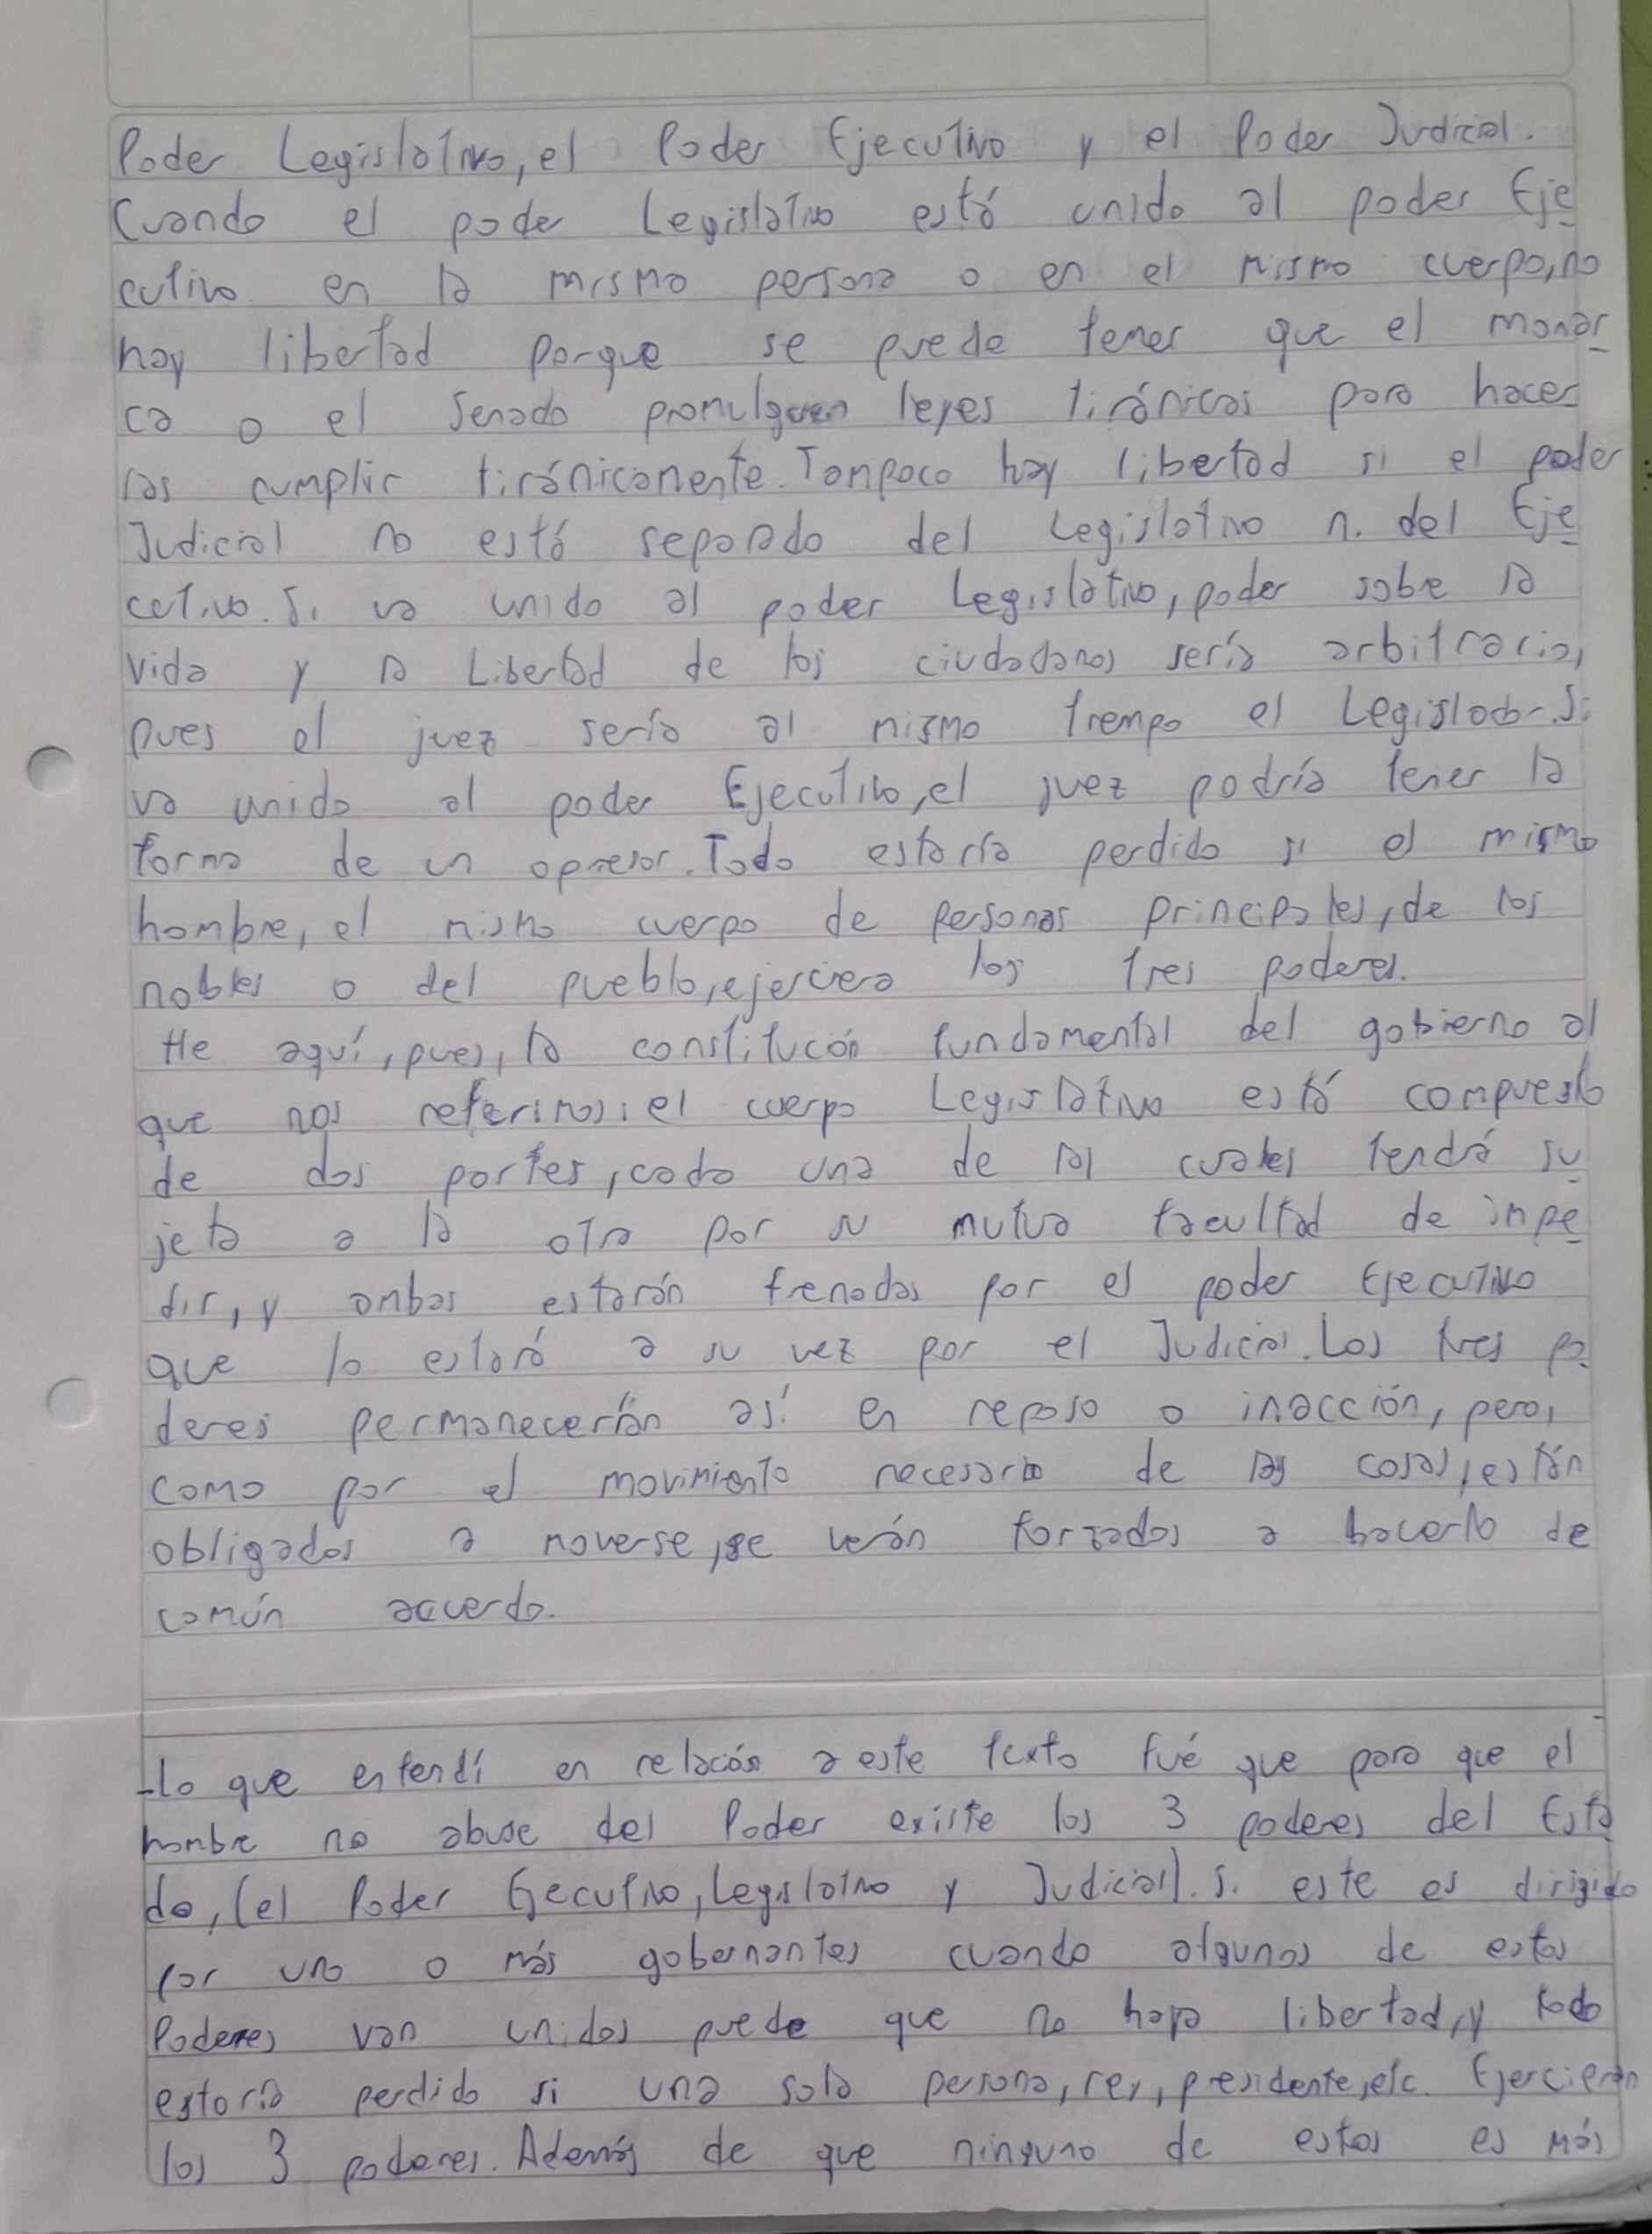 Poder Legislativo, el Poder Ejecutivo y el Poder Judicial.
Cuando el poder Legislativo está unido al poder Eje
cutivo en la misma persona o en el mismo cuerpo, no
hay libertad porque se puede temer que el monar
ca o el Senado promulguen leyes tiránicas para hacer
las cumplir tiránicamente. Tampoco hay libertad si el poder
Judicial no está separado del Legislativo ni del Eje
cutivo. Si va unido al poder Legislativo, poder sobre la
vida y la Libertad de los ciudadanos sería arbitrario,
pues el juez sería al mismo tiempo el Legislador. Si
va unido al poder Ejecutivo, el juez podría tener la
forma de un opresor. Todo estaría perdido si el mismo
hombre, el mismo cuerpo de personas principales, de los
nobles o del pueblo, ejerciera los tres poderes.
He aquí, pues, la constitución fundamental del gobierno al
que nos referimos: el cuerpo Legislativo está compuesto
de dos partes, cada una de las cuales tendrá su
jeta a la otra por su mutua facultad de impe
dir, y ambas estarán frenadas por el poder Ejecutivo
que lo estará a su vez por el Judicial. Los tres po
deres permanecerían así en reposo o inacción, pero,
como por el movimiento necesario de las cosas, están
obligados a moverse, se verán forzados a hacerlo de
común acuerdo.
-Lo que entendí en relación a este texto fué que para que el
hombre no abuse del Poder existe los 3 poderes del Esta
do, (el Poder Ejecutivo, Legislativo y Judicial). Si este es dirigido
por uno o más gobernantes cuando algunos de estos
Poderes van unidos puede que no haya libertad, y todo
estaría perdido si una sola persona, rey, presidente, etc. Ejercieran
los 3 poderes. Además de que ninguno de estos es más